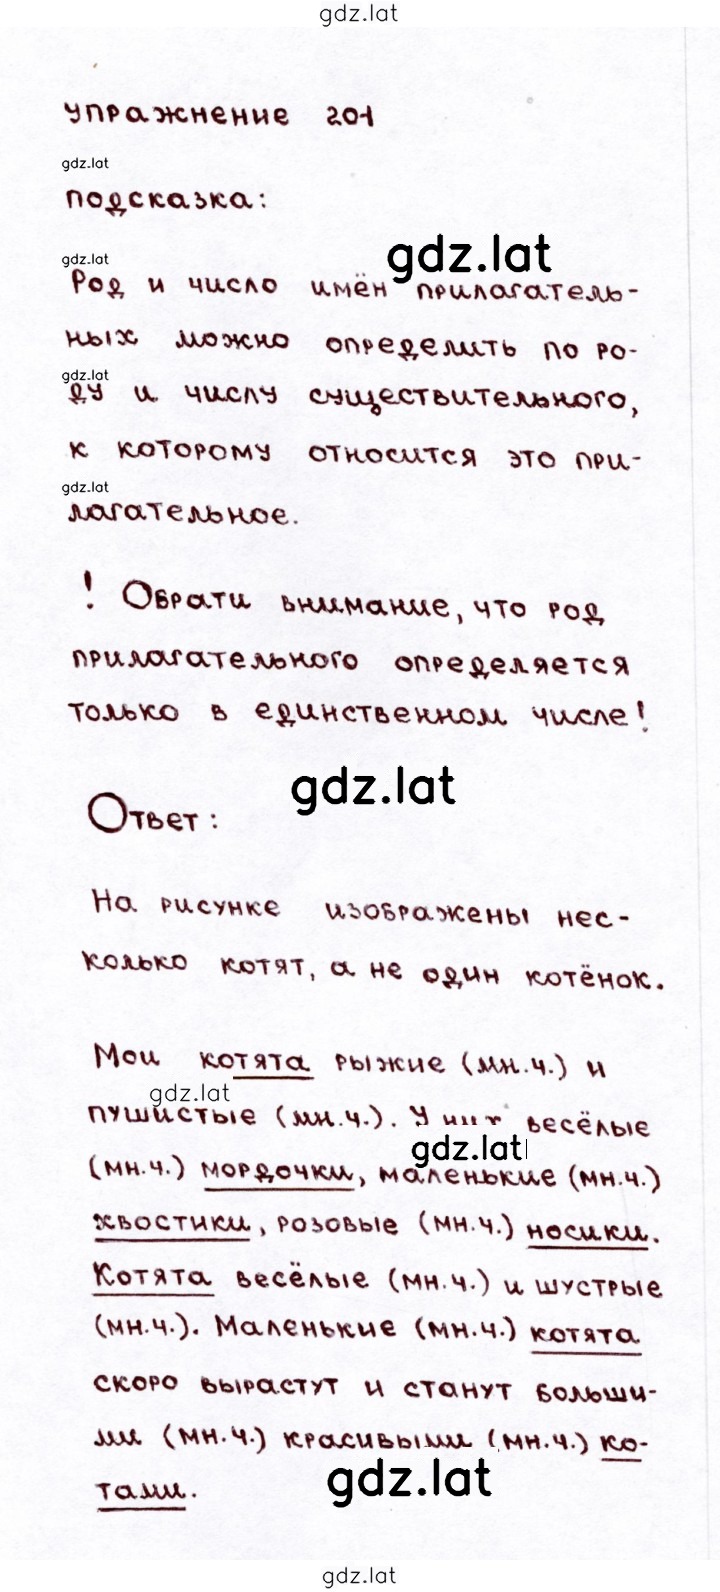 gdz.lat
упражнение 201
gdz.lat
подсказка:
gdz.lat
gdz.lat
Род и число имён прилагатель-
ных можно определить по ро-
gdz.lat
ду и числу существительного,
к которому относится это при-
gdz.lat
лагательное.
! Обрати внимание, что род
прилагательного определяется
только в единственном числе!
gdz.lat
Ответ:
На рисунке изображены нес-
колько котят, а не один котёнок.
Мои котята рыжие (мн.ч.) и
gdz.lat
пушистые (мн.ч.). У них весёлые
gdz.lat
(мн.ч.) мордочки, маленькие (мн.ч.)
хвостики, розовые (мн.ч.) носики.
Котята весёлые (мн.ч.) и шустрые
(мн.ч.). Маленькие (мн.ч.) котята
скоро вырастут и станут больши-
ми (мн.ч.) красивыми (мн.ч.) ко-
gdz.lat
тами.
gdz.lat